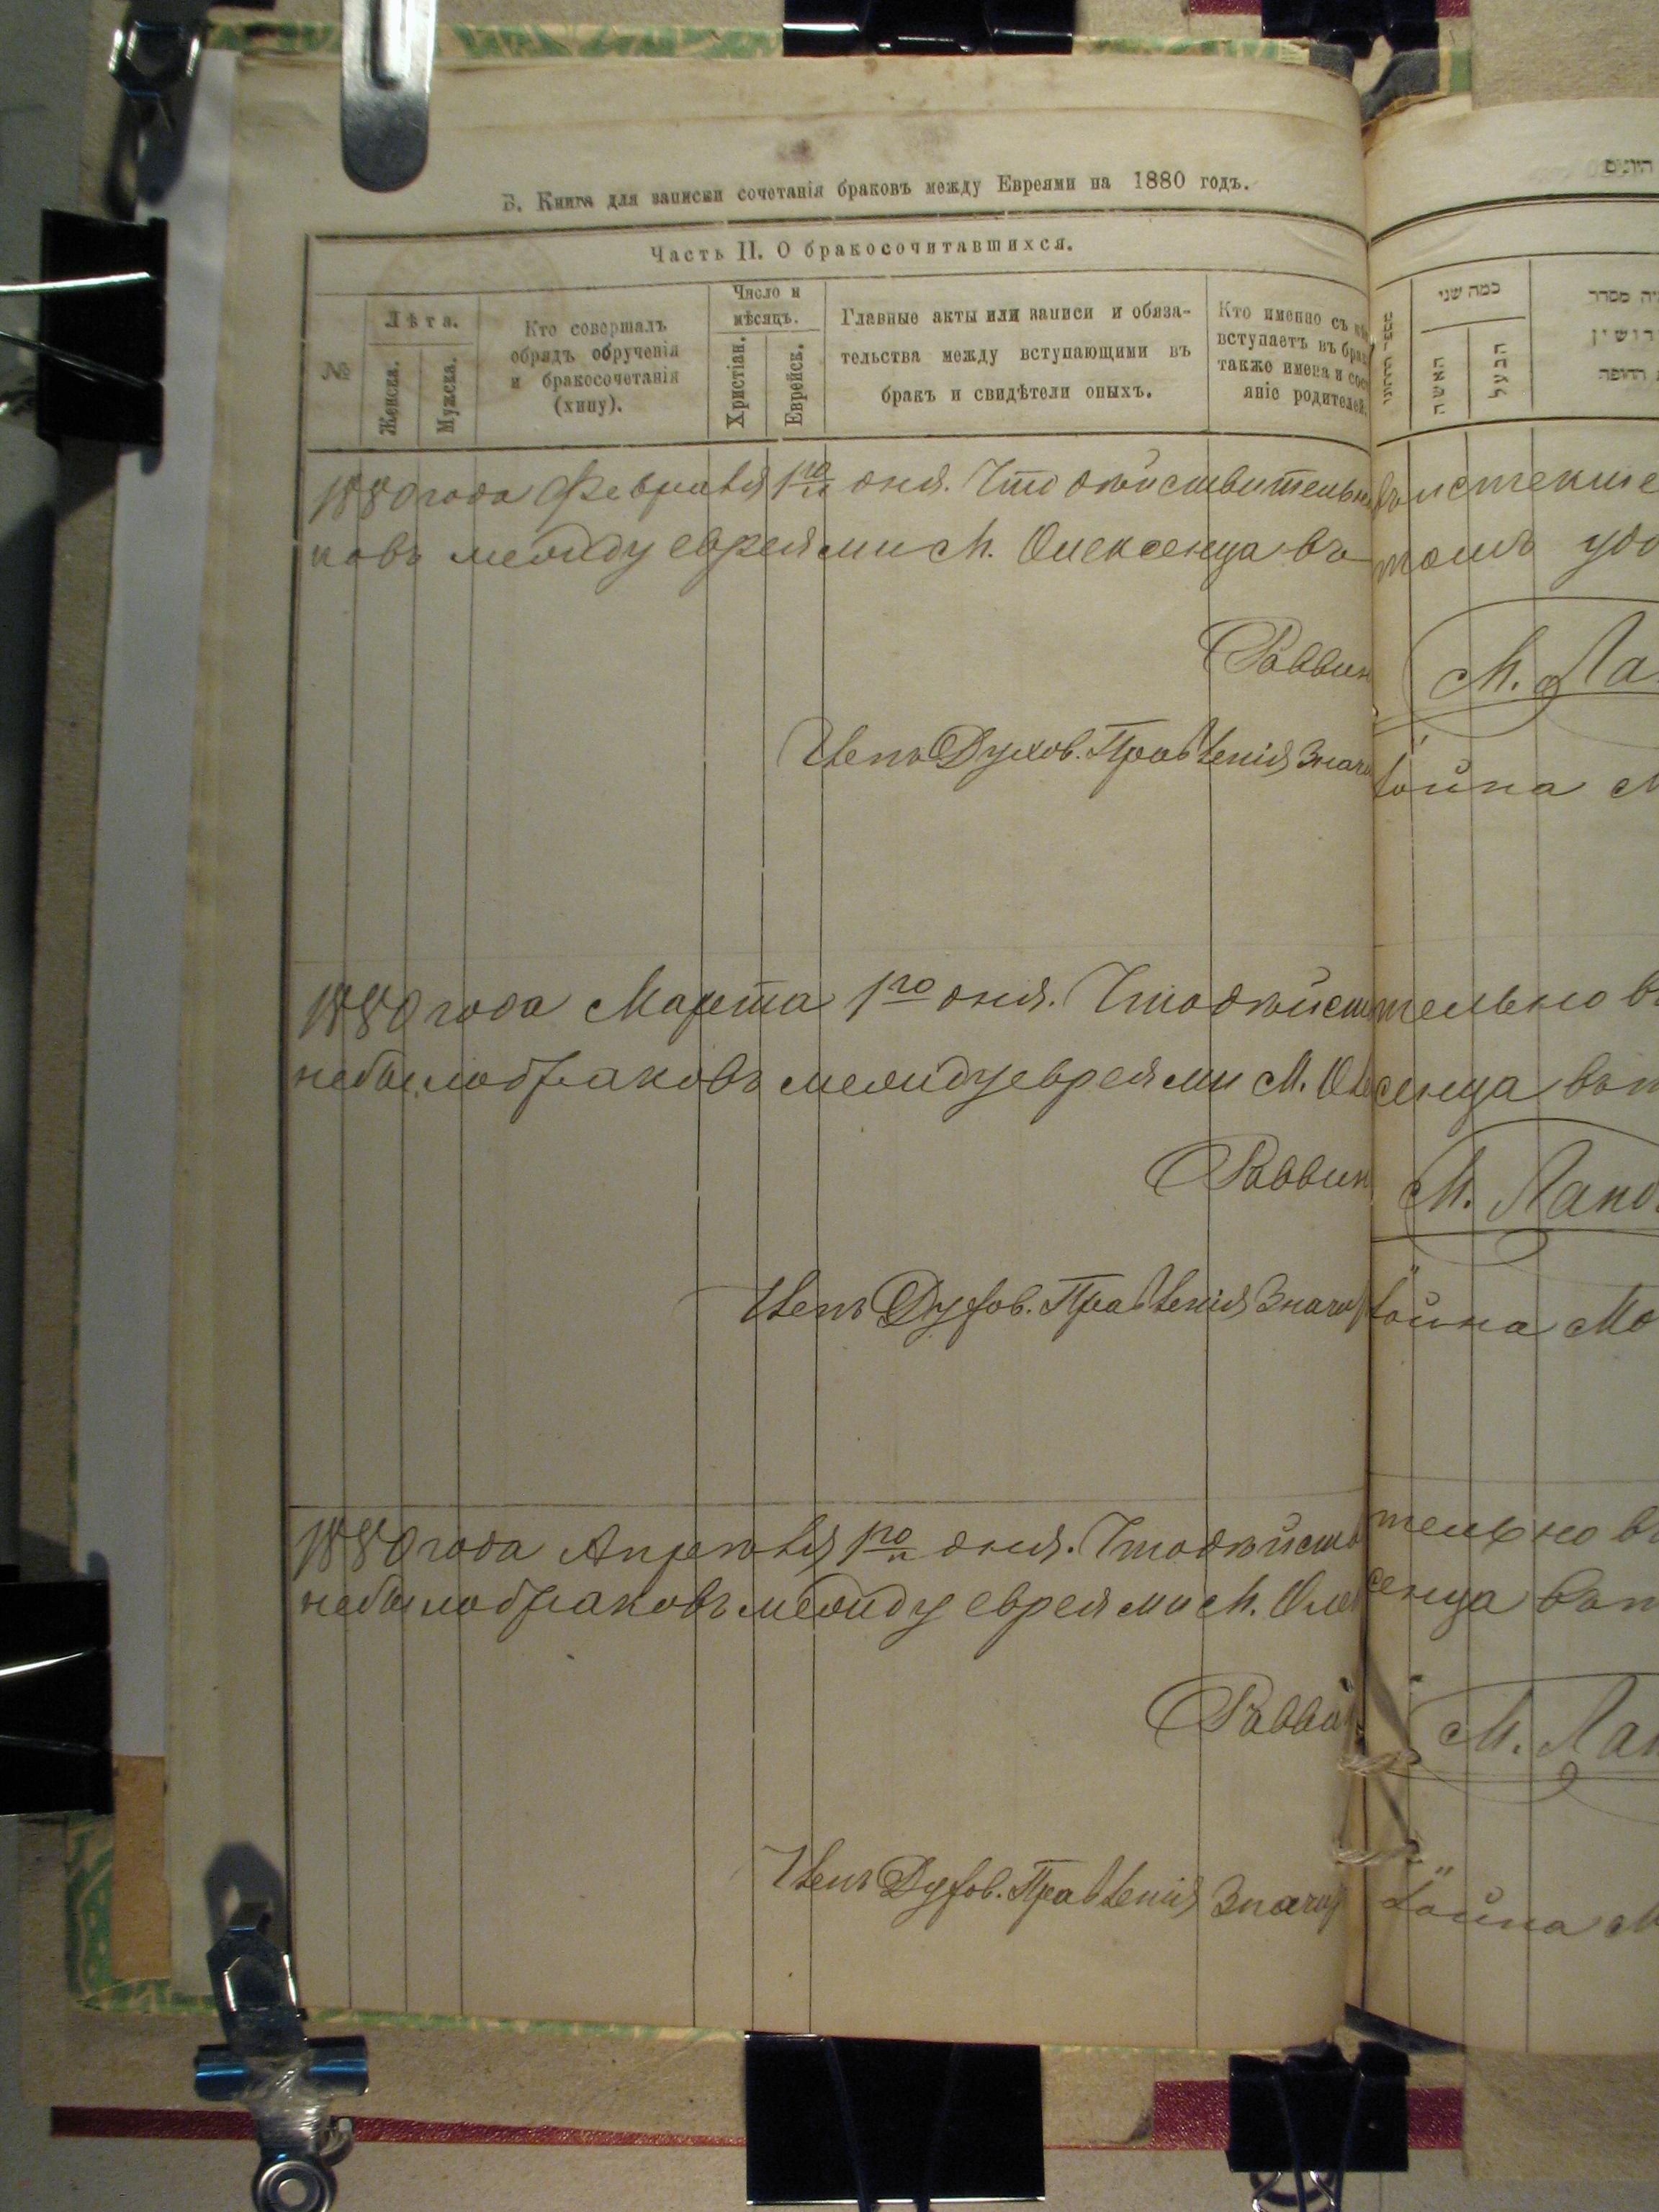 Б. Книга для записки сочетанія браковъ между Евреями на 1880 годъ.
Часть II. О бракосочитавшихся.
№
Лѣта.
Женска.
Мужска.
Кто совершалъ
обрядъ обрученія
и бракосочетанія
(хипу).
Число и
мѣсяцъ.
Христіан.
Еврейск.
Главные акты или записи и обяза-
тельства между вступающими въ
бракъ и свидѣтели оныхъ.
Кто именно съ
вступаетъ въ
также имена и
яніе родителей.
כמה שני
האשה
הבעל
1880 года Февраля 1го дня. Что дѣйствительно въ истекше
ковъ между евреями М. Олексенца въ томъ
Раввин М.
Членъ Духов. Правленія
1880 года Марта 1го дня. Что дѣйст тельно
небыло браковъ между евреями М. Оле сенца
Раввин М. Ланд
Членъ Духов. Правленія
1880 года Апрѣля 1го дня. Что дѣйств тельно
небыло браковъ между евреями М. Олек сенца
М. Лан
Членъ Духов. Правленія